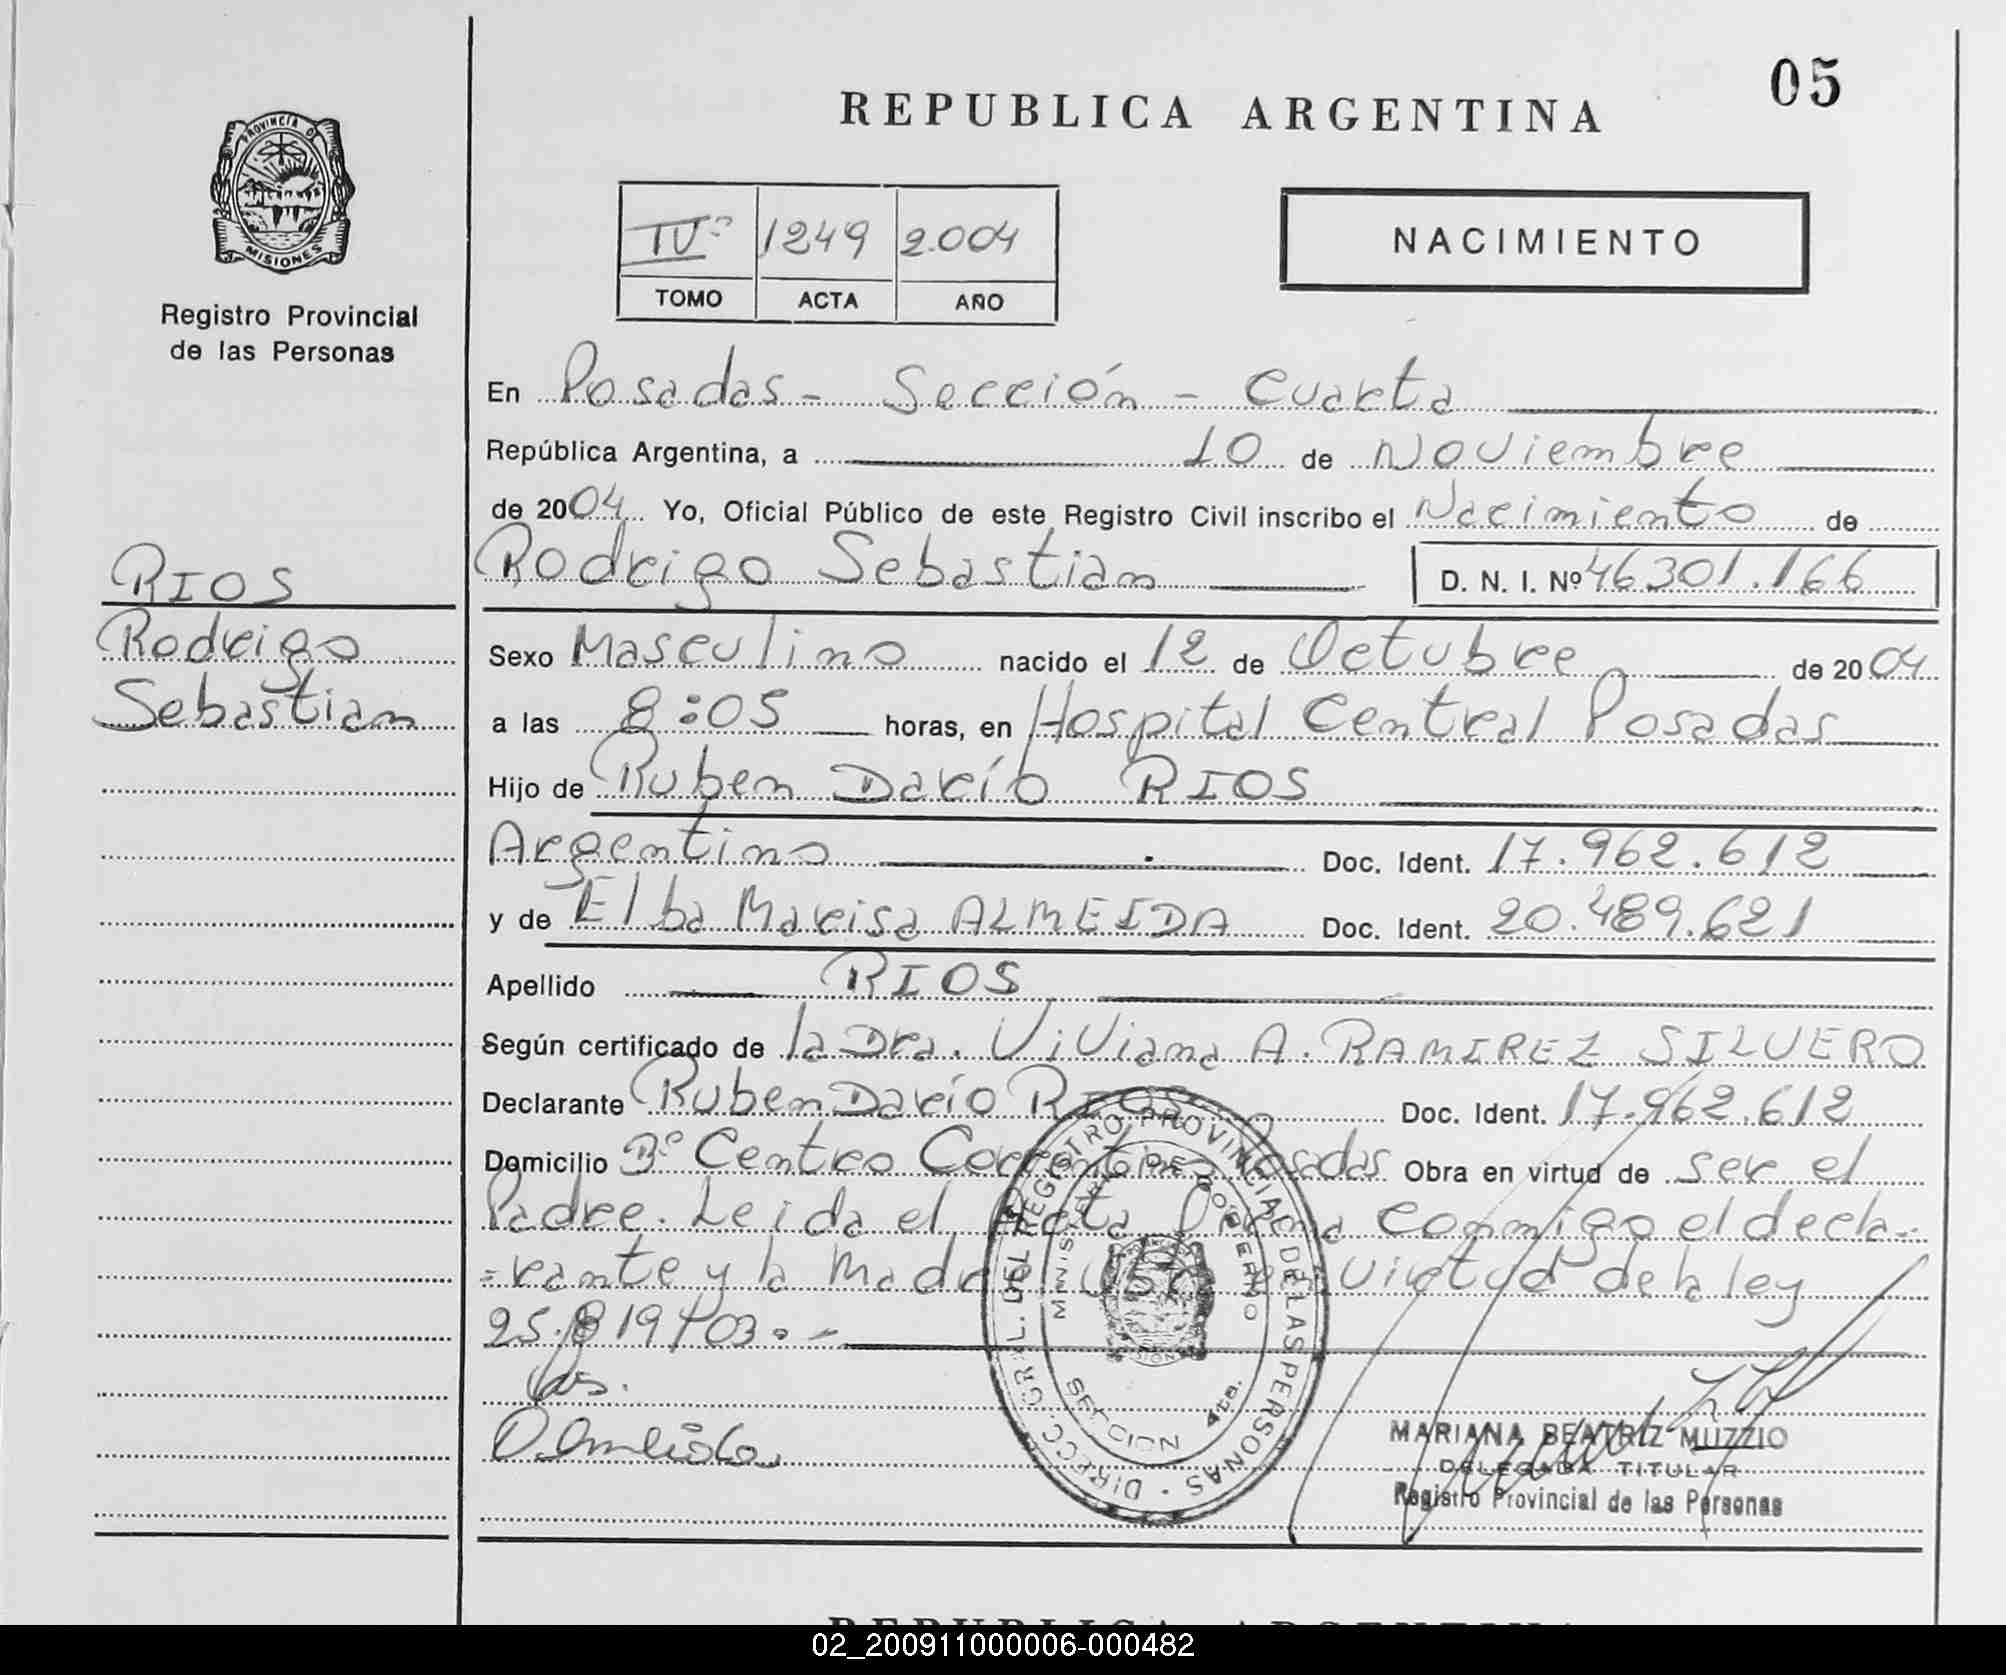 05
REPUBLICA ARGENTINA
PROVINCIA DE
MISIONES
Registro Provincial
de las Personas
IVº 1249 2.004
TOMO ACTA AÑO
NACIMIENTO
En Posadas - Sección - Cuarta
República Argentina, a 10 de Noviembre
de 2004 Yo, Oficial Público de este Registro Civil inscribo el Nacimiento de
Rodrigo Sebastian D. N. I. Nº 46301.166
RIOS
Rodrigo
Sebastian
Sexo Masculino nacido el 12 de Octubre de 2004
a las 8:05 horas, en Hospital Central Posadas
Hijo de Ruben Darío RIOS
Argentino Doc. Ident. 17.962.612
y de Elba Marisa ALMEIDA Doc. Ident. 20.489.621
Apellido RIOS
Según certificado de la Dra. Viviana A. RAMIREZ SILVERO
Declarante Ruben Darío RIOS Doc. Ident. 17.962.612
Domicilio Bº Centro Posadas Obra en virtud de ser el
Padre. Leida el Acta conmigo el decla-
rante y la Madre virtud de la ley
25.819/03.-
DIRECC. GRAL. DEL REGISTRO PROVINCIAL DE LAS PERSONAS
MINISTERIO DE GOBIERNO
SECCION 4ta.
MARIANA BEATRIZ MUZZIO
DELEGADA TITULAR
Registro Provincial de las Personas
REPUBLICA ARGENTINA
02_200911000006-000482